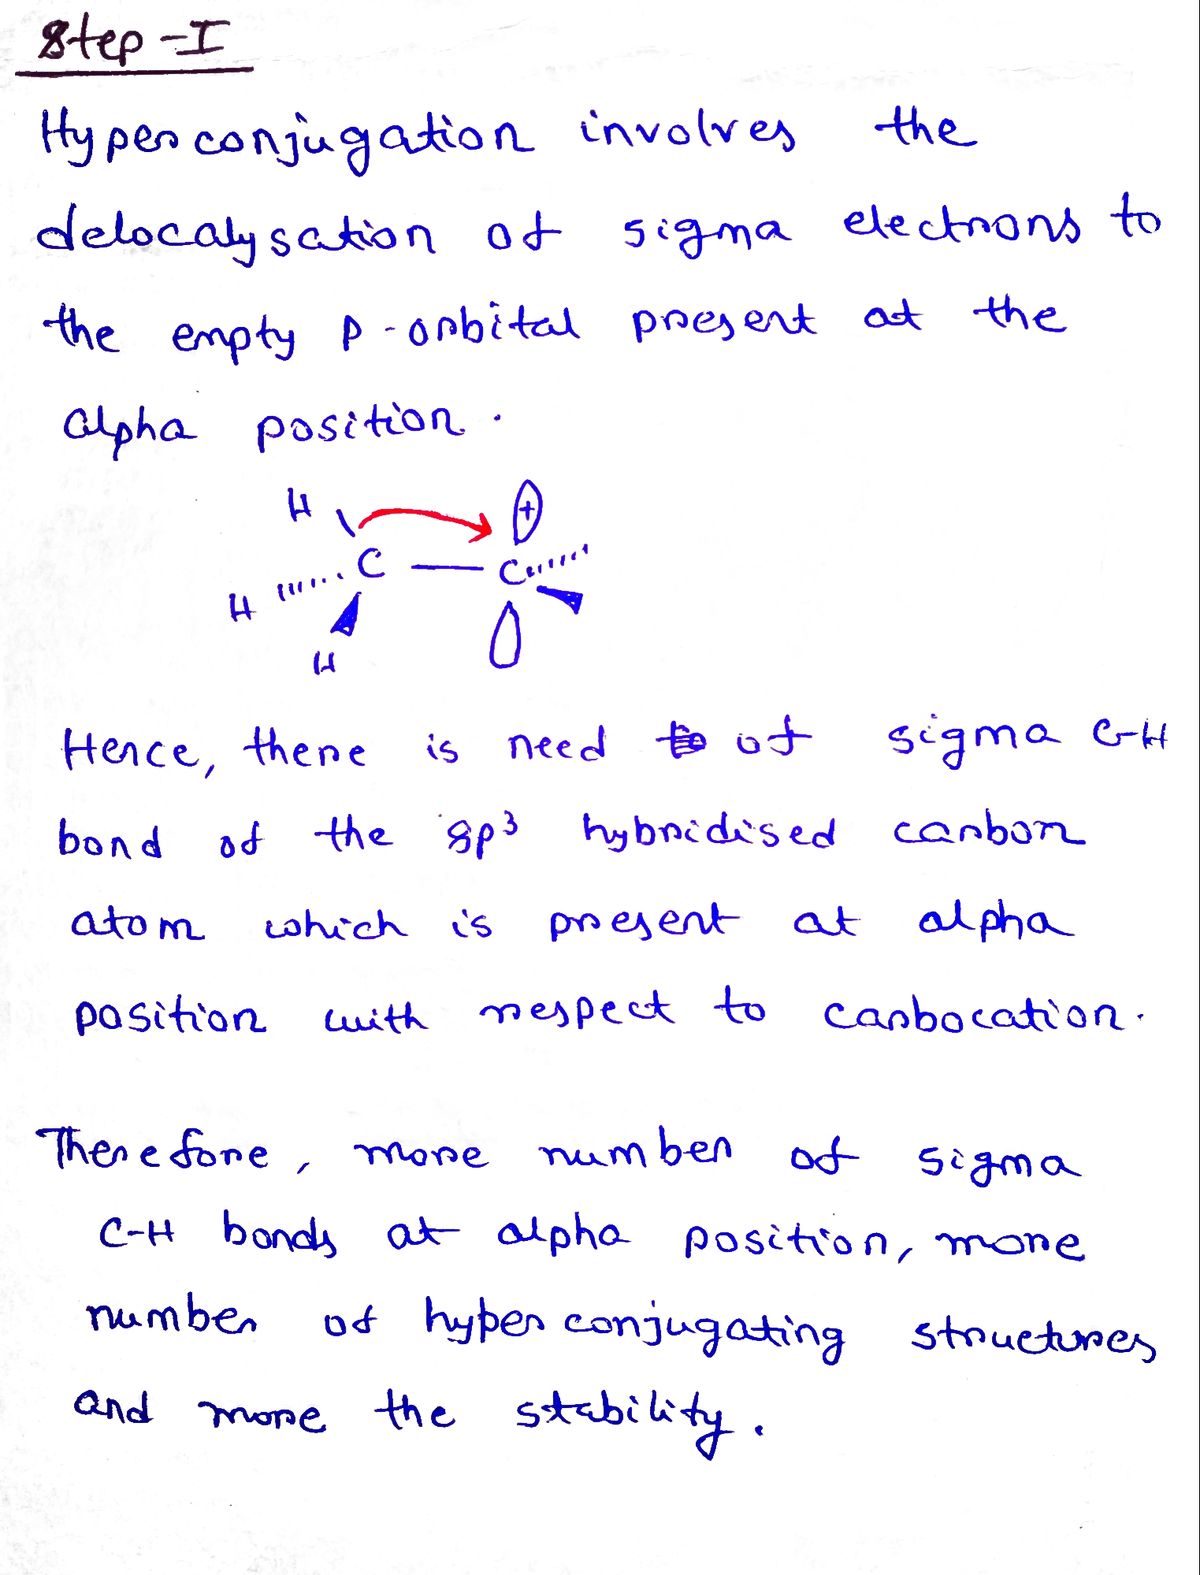 Step-I
Hyperconjugation involves the
delocalysation of sigma electrons to
the empty p-orbital present at the
alpha position.
H
+
C — C
H
H
Hence, there is need of sigma C-H
bond of the sp³ hybridised carbon
atom which is present at alpha
position with respect to carbocation.
Therefore, more number of sigma
C-H bonds at alpha position, more
number of hyperconjugating structures
and more the stability.